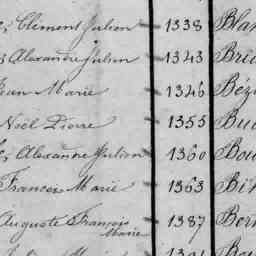 Clément Julien 1338 Bla
Alexandre Julien 1343 Bri
Jean Marie 1346 Béz
Noël Pierre 1355 Bu
Alexandre Julien 1360 Bou
François Marie 1363
Auguste François Marie 1387 Ber